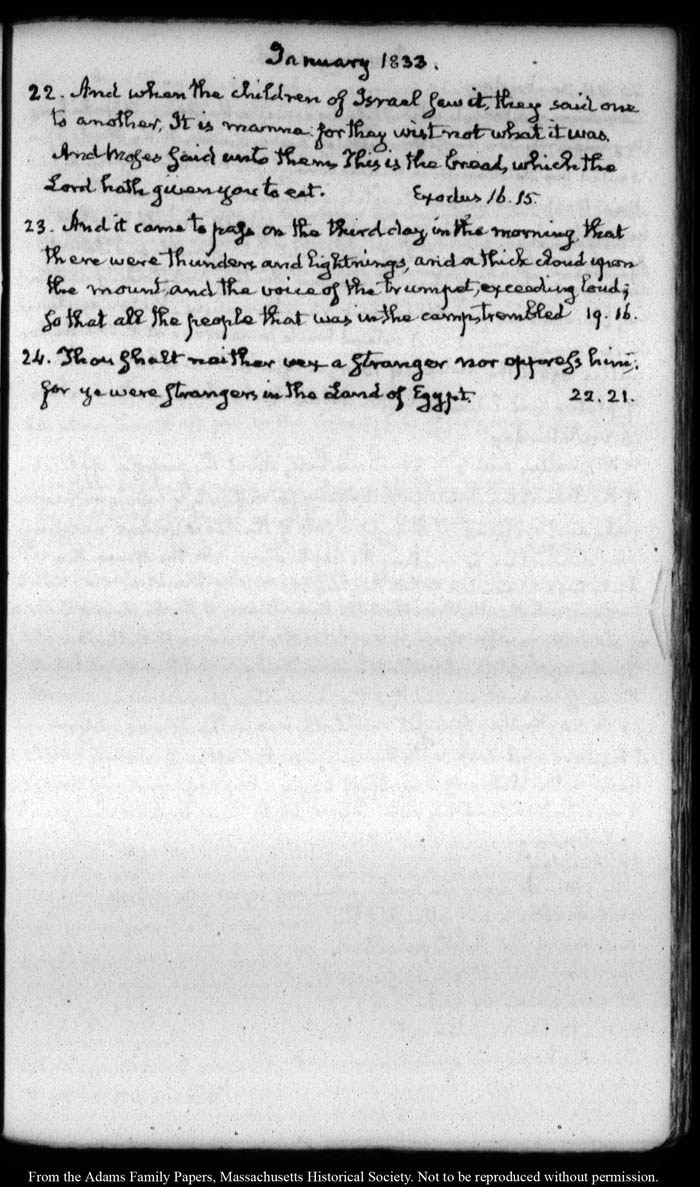 January 1833.
22. And when the children of Israel saw it, they said one
to another, It is manna: for they wist not what it was.
And Moses said unto them, This is the bread, which the
Lord hath given you to eat. Exodus 16.15.
23. And it came to pass on the third day, in the morning, that
there were thunders and lightnings, and a thick cloud upon
the mount, and the voice of the trumpet, exceeding loud;
so that all the people that was in the camp, trembled 19.16.
24. Thou shalt neither vex a stranger nor oppress him:
for ye were strangers in the Land of Egypt. 22.21.
From the Adams Family Papers, Massachusetts Historical Society. Not to be reproduced without permission.